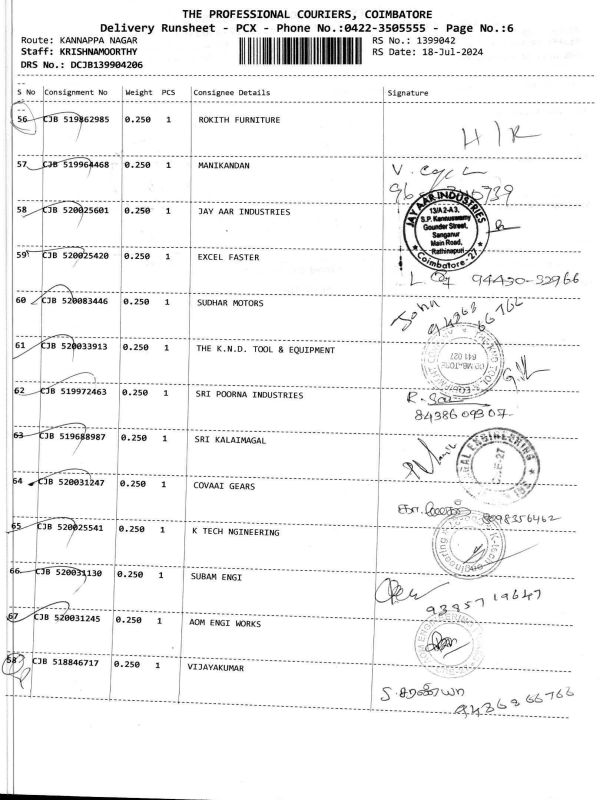 THE PROFESSIONAL COURIERS, COIMBATORE
Delivery Runsheet - PCX - Phone No.:0422-3505555 - Page No.:6
Route: KANNAPPA NAGAR RS No.: 1399042
Staff: KRISHNAMOORTHY RS Date: 18-Jul-2024
DRS No.: DCJB139904206
S No Consignment No Weight PCS Consignee Details Signature
56 CJB 519862985 0.250 1 ROKITH FURNITURE H/R
57 CJB 519964468 0.250 1 MANIKANDAN
58 CJB 520025601 0.250 1 JAY AAR INDUSTRIES
JAY AAR INDUSTRIES
13/A2-A3,
S.P. Kannuswamy
Gounder Street,
Sanganur
Main Road,
Rathinapuri
Coimbatore-27
59 CJB 520025420 0.250 1 EXCEL FASTER
94430-32966
60 CJB 520083446 0.250 1 SUDHAR MOTORS
94868
66762
61 CJB 520033913 0.250 1 THE K.N.D. TOOL & EQUIPMENT
641 027
62 CJB 519972463 0.250 1 SRI POORNA INDUSTRIES
8438609307
63 CJB 519688987 0.250 1 SRI KALAIMAGAL
64 CJB 520031247 0.250 1 COVAAI GEARS
8098356462
65 CJB 520025541 0.250 1 K TECH NGINEERING
66 CJB 520031130 0.250 1 SUBAM ENGI
9395719647
67 CJB 520031245 0.250 1 AOM ENGI WORKS
58 CJB 518846717 0.250 1 VIJAYAKUMAR
S. சரண்யா